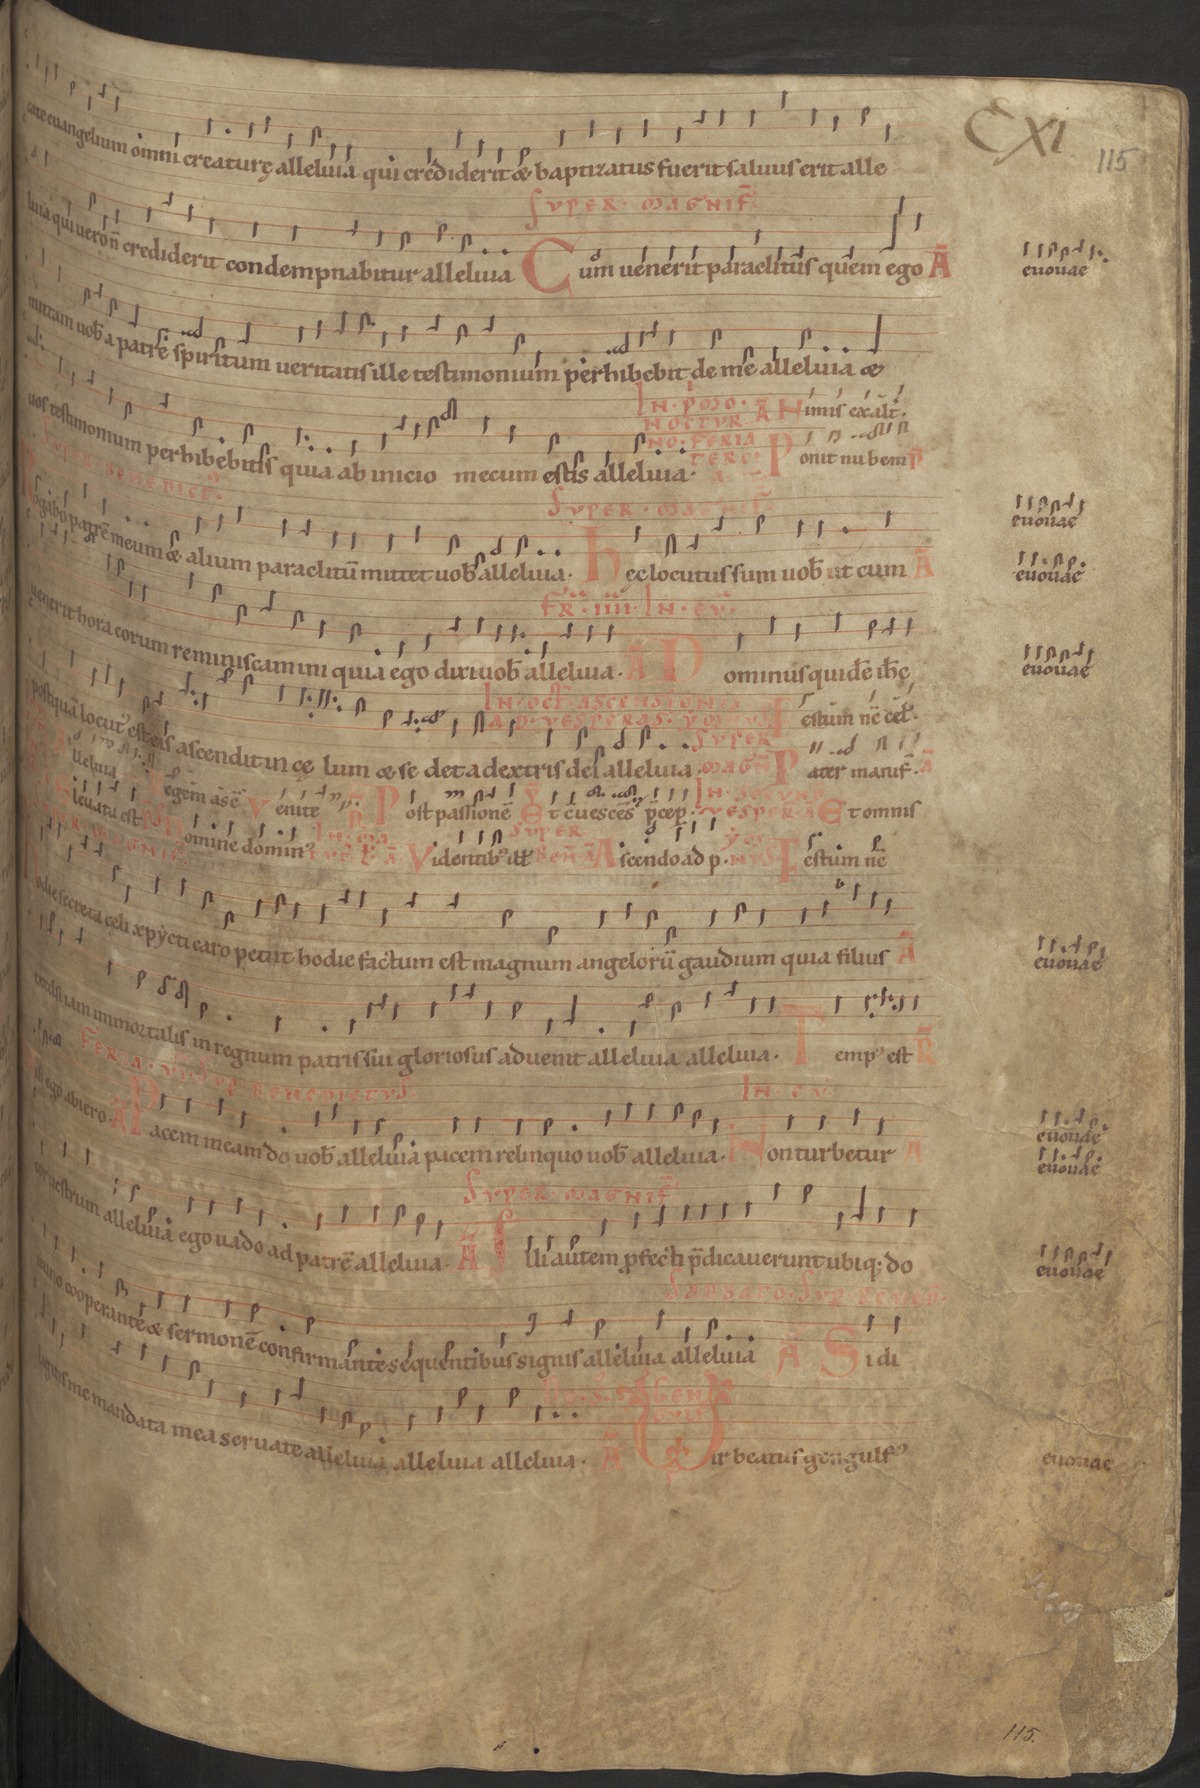 CXI
115
cate euangelium omni creaturę alleluia qui crediderit & baptizatus fuerit saluus erit alle
SUPER MAGNIF̄
luia qui uero n̄ crediderit condempnabitur alleluia Cum uenerit paraclitus quem ego Ā
euouae
mittam uob̄ a patre spiritum ueritatis ille testimonium perhibebit de me alleluia &
IN PMO NOCTUR Ā Nimis exalt̄.
uos testimonium perhibebitis quia ab inicio mecum estis alleluia. NO FERIA TERC̄ Ponit nubem
SUPER BENEDICT̄
SUPER MAGNIF̄
euouae
Rogabo patrē meum & alium paraclitū mittet uob̄ alleluia. hęc locutus sum uob̄ ut cum Ā
euouae
FR̄ IIII IN EV̄
uenerit hora eorum reminiscamini quia ego dixi uob̄ alleluia. Ā Dominus quidē ih̄c
euouae
IN OCT̄ ASCENSIONIS
AD VESPERAS YMNUS Festum nē cel̄.
postquā locut' est eis ascendit in cę lum & sedet a dextris dei alleluia. SUPER MAGN̄ Pater manif̄. Ā
lleluia Regem ascē Venite Post passionē Et cuescēs p̄cep̄. IN SECUND VESPERA Et omnis
leuata est omine domin' IN MA Ā Videntib' ill̄ SUPER BEN̄ Ā Ascendo ad p. YMNUS Festum nē
hodie secreta celi & xp̄ycti caro petiit hodie factum est magnum angelorū gaudium quia filius Ā
euouae
excelsi iam immortalis in regnum patris sui gloriosus aduenit alleluia alleluia. Temp' est R̄
FERIA VI SUP BENEDICTUS
IN EV̄
isi ego abiero. Ā Pacem meam do uob̄ alleluia pacem relinquo uob̄ alleluia. Non turbetur Ā
euouae
euouae
SUPER MAGNIF̄
cor uestrum alleluia ego uado ad patrē alleluia. Ā Illi autem p̄fecti p̄dicauerunt ubiq; do
euouae
SABBATO SUP BENED
mino cooperante & sermonē confirmante sequentibus signis alleluia alleluia Ā Si di
ligitis me mandata mea seruate alleluia alleluia alleluia. Ā Vir beatus gengulf'
euouae
115.